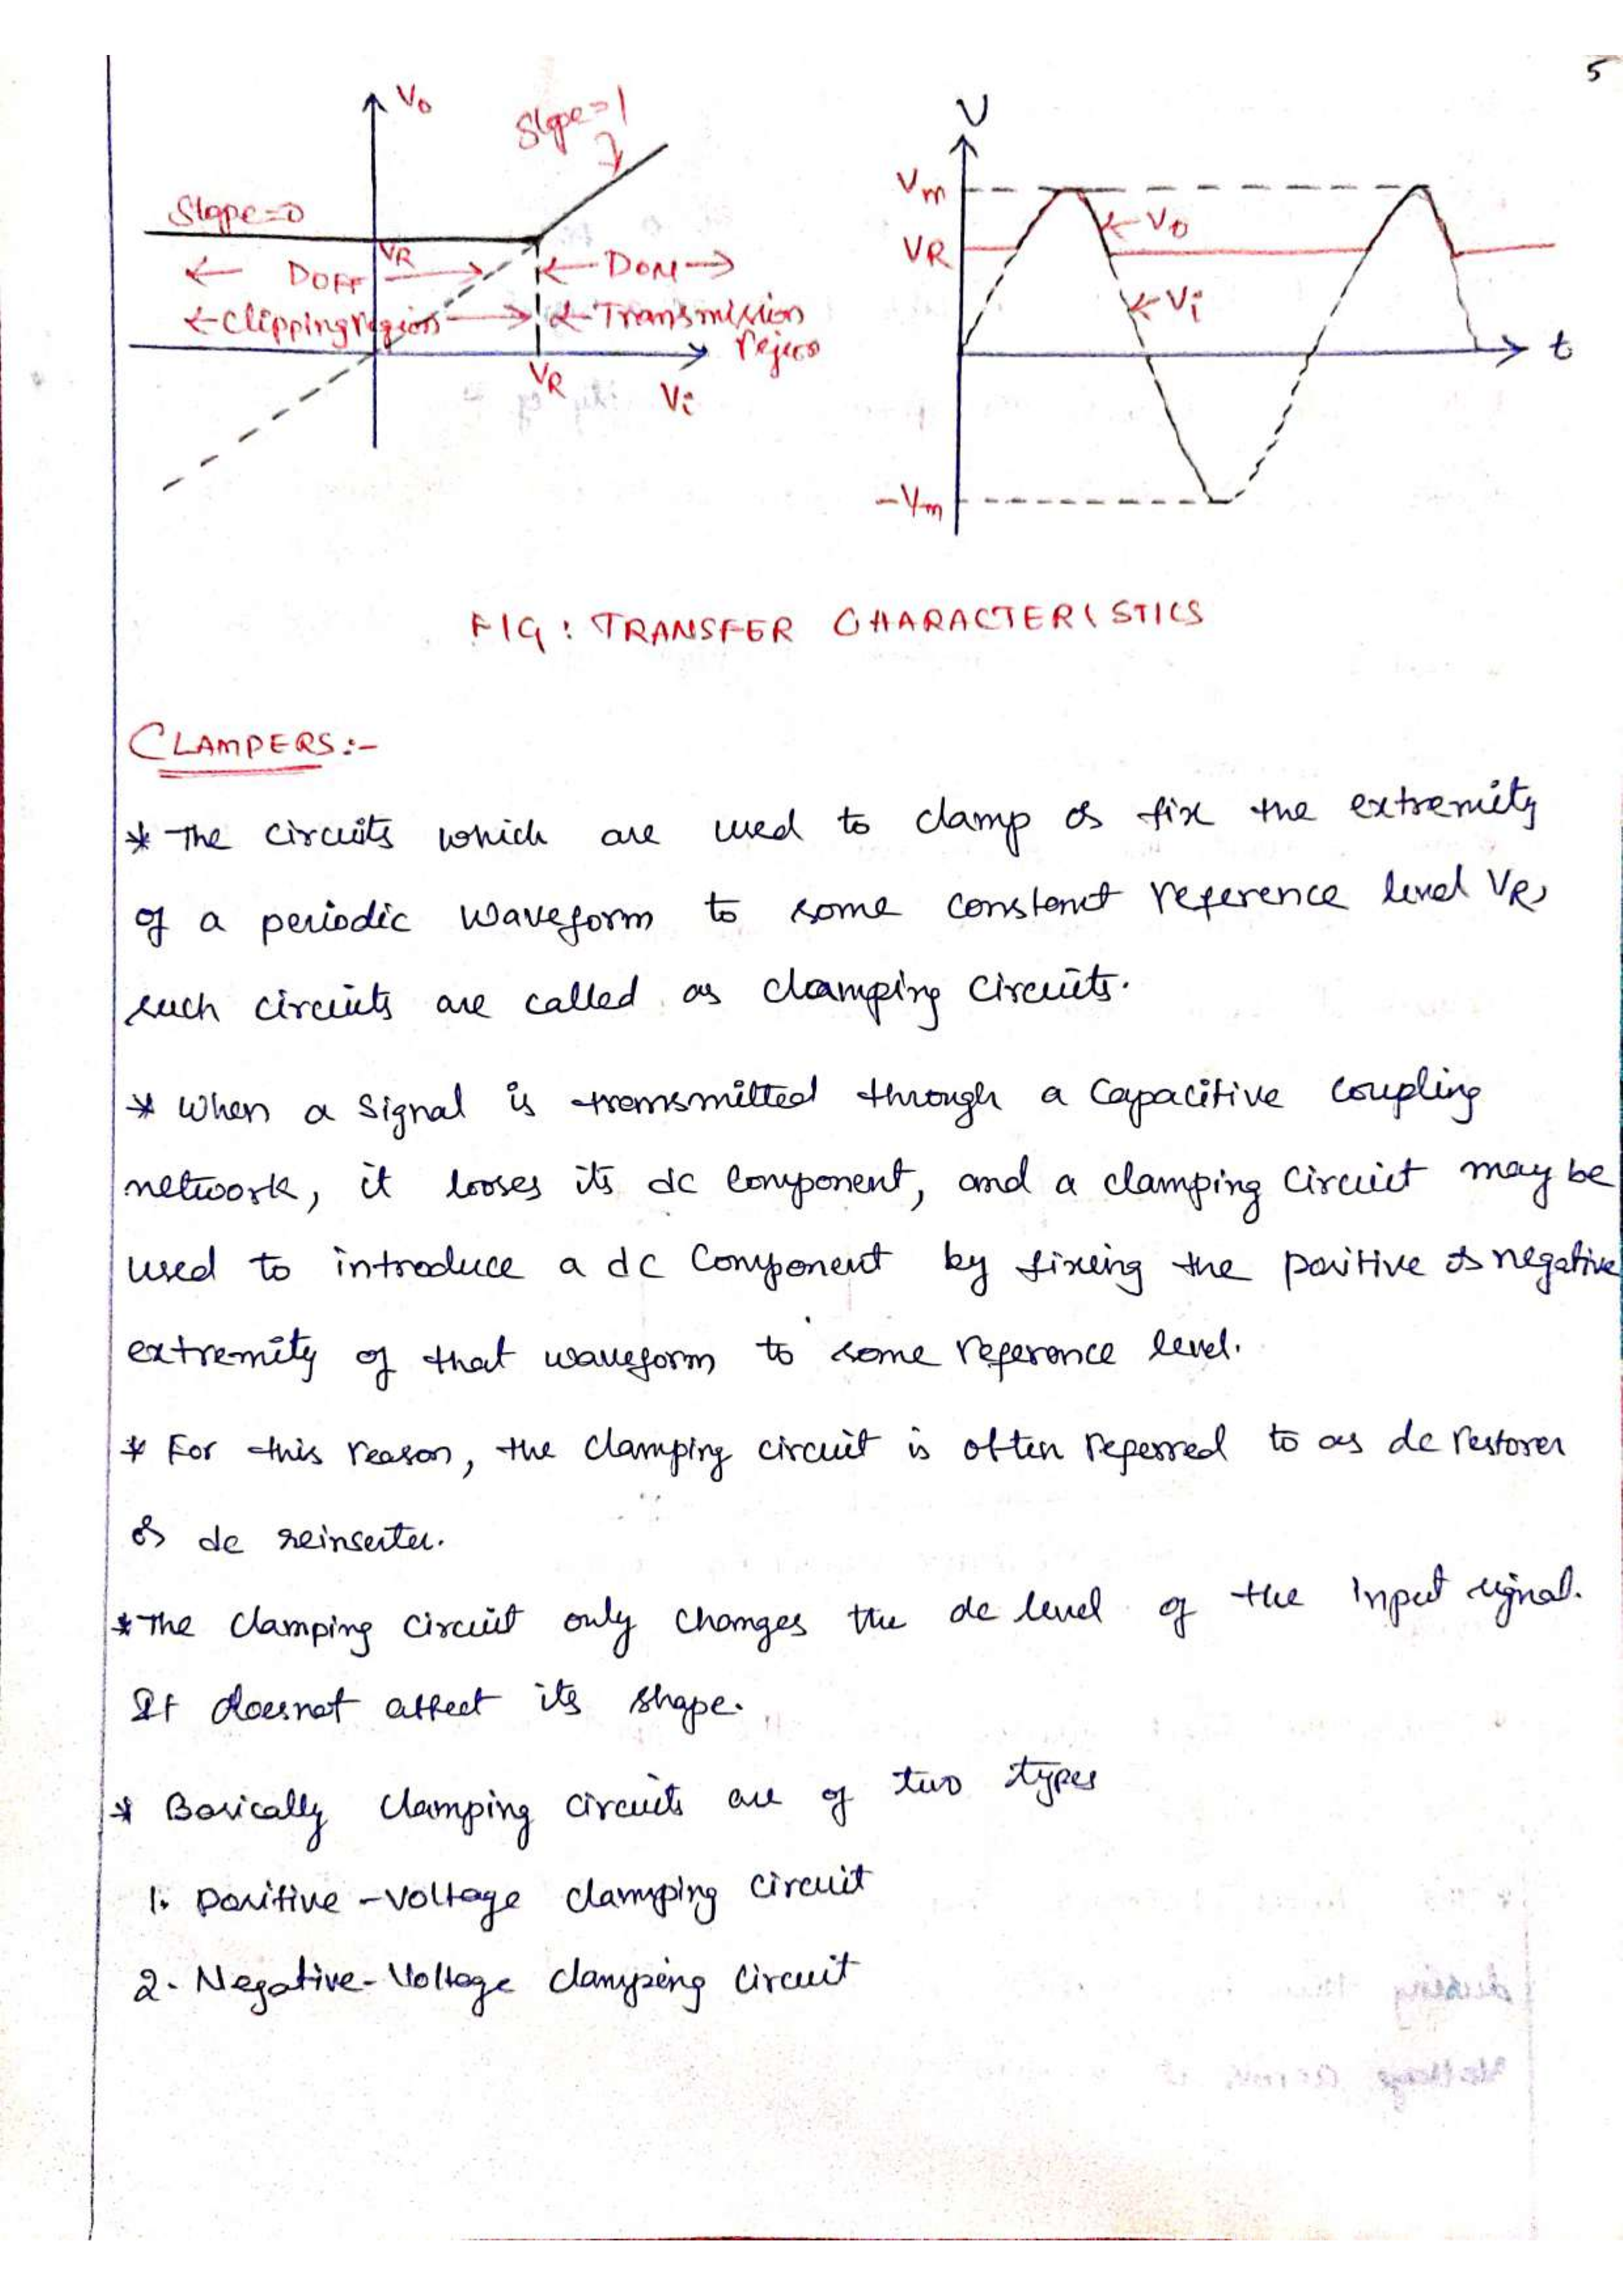 5
V₀
Slope=1
Slope=0
VR
← DOFF →
← DON →
← Clipping region →
← Transmission
region
VR
Vi
V
Vm
← V₀
VR
← Vi
t
-Vm
FIG: TRANSFER CHARACTERISTICS
CLAMPERS:-
* The circuits which are used to clamp or fix the extremity
of a periodic waveform to some constant reference level VR,
such circuits are called as clamping circuits.
* When a signal is transmitted through a capacitive coupling
network, it looses its dc component, and a clamping circuit may be
used to introduce a dc component by fixing the positive or negative
extremity of that waveform to some reference level.
* For this reason, the clamping circuit is often referred to as dc restorer
or dc reinserter.
* The clamping circuit only changes the dc level of the input signal.
It doesnot affect its shape.
* Basically clamping circuits are of two types
1. positive-voltage clamping circuit
2. Negative-Voltage clamping circuit